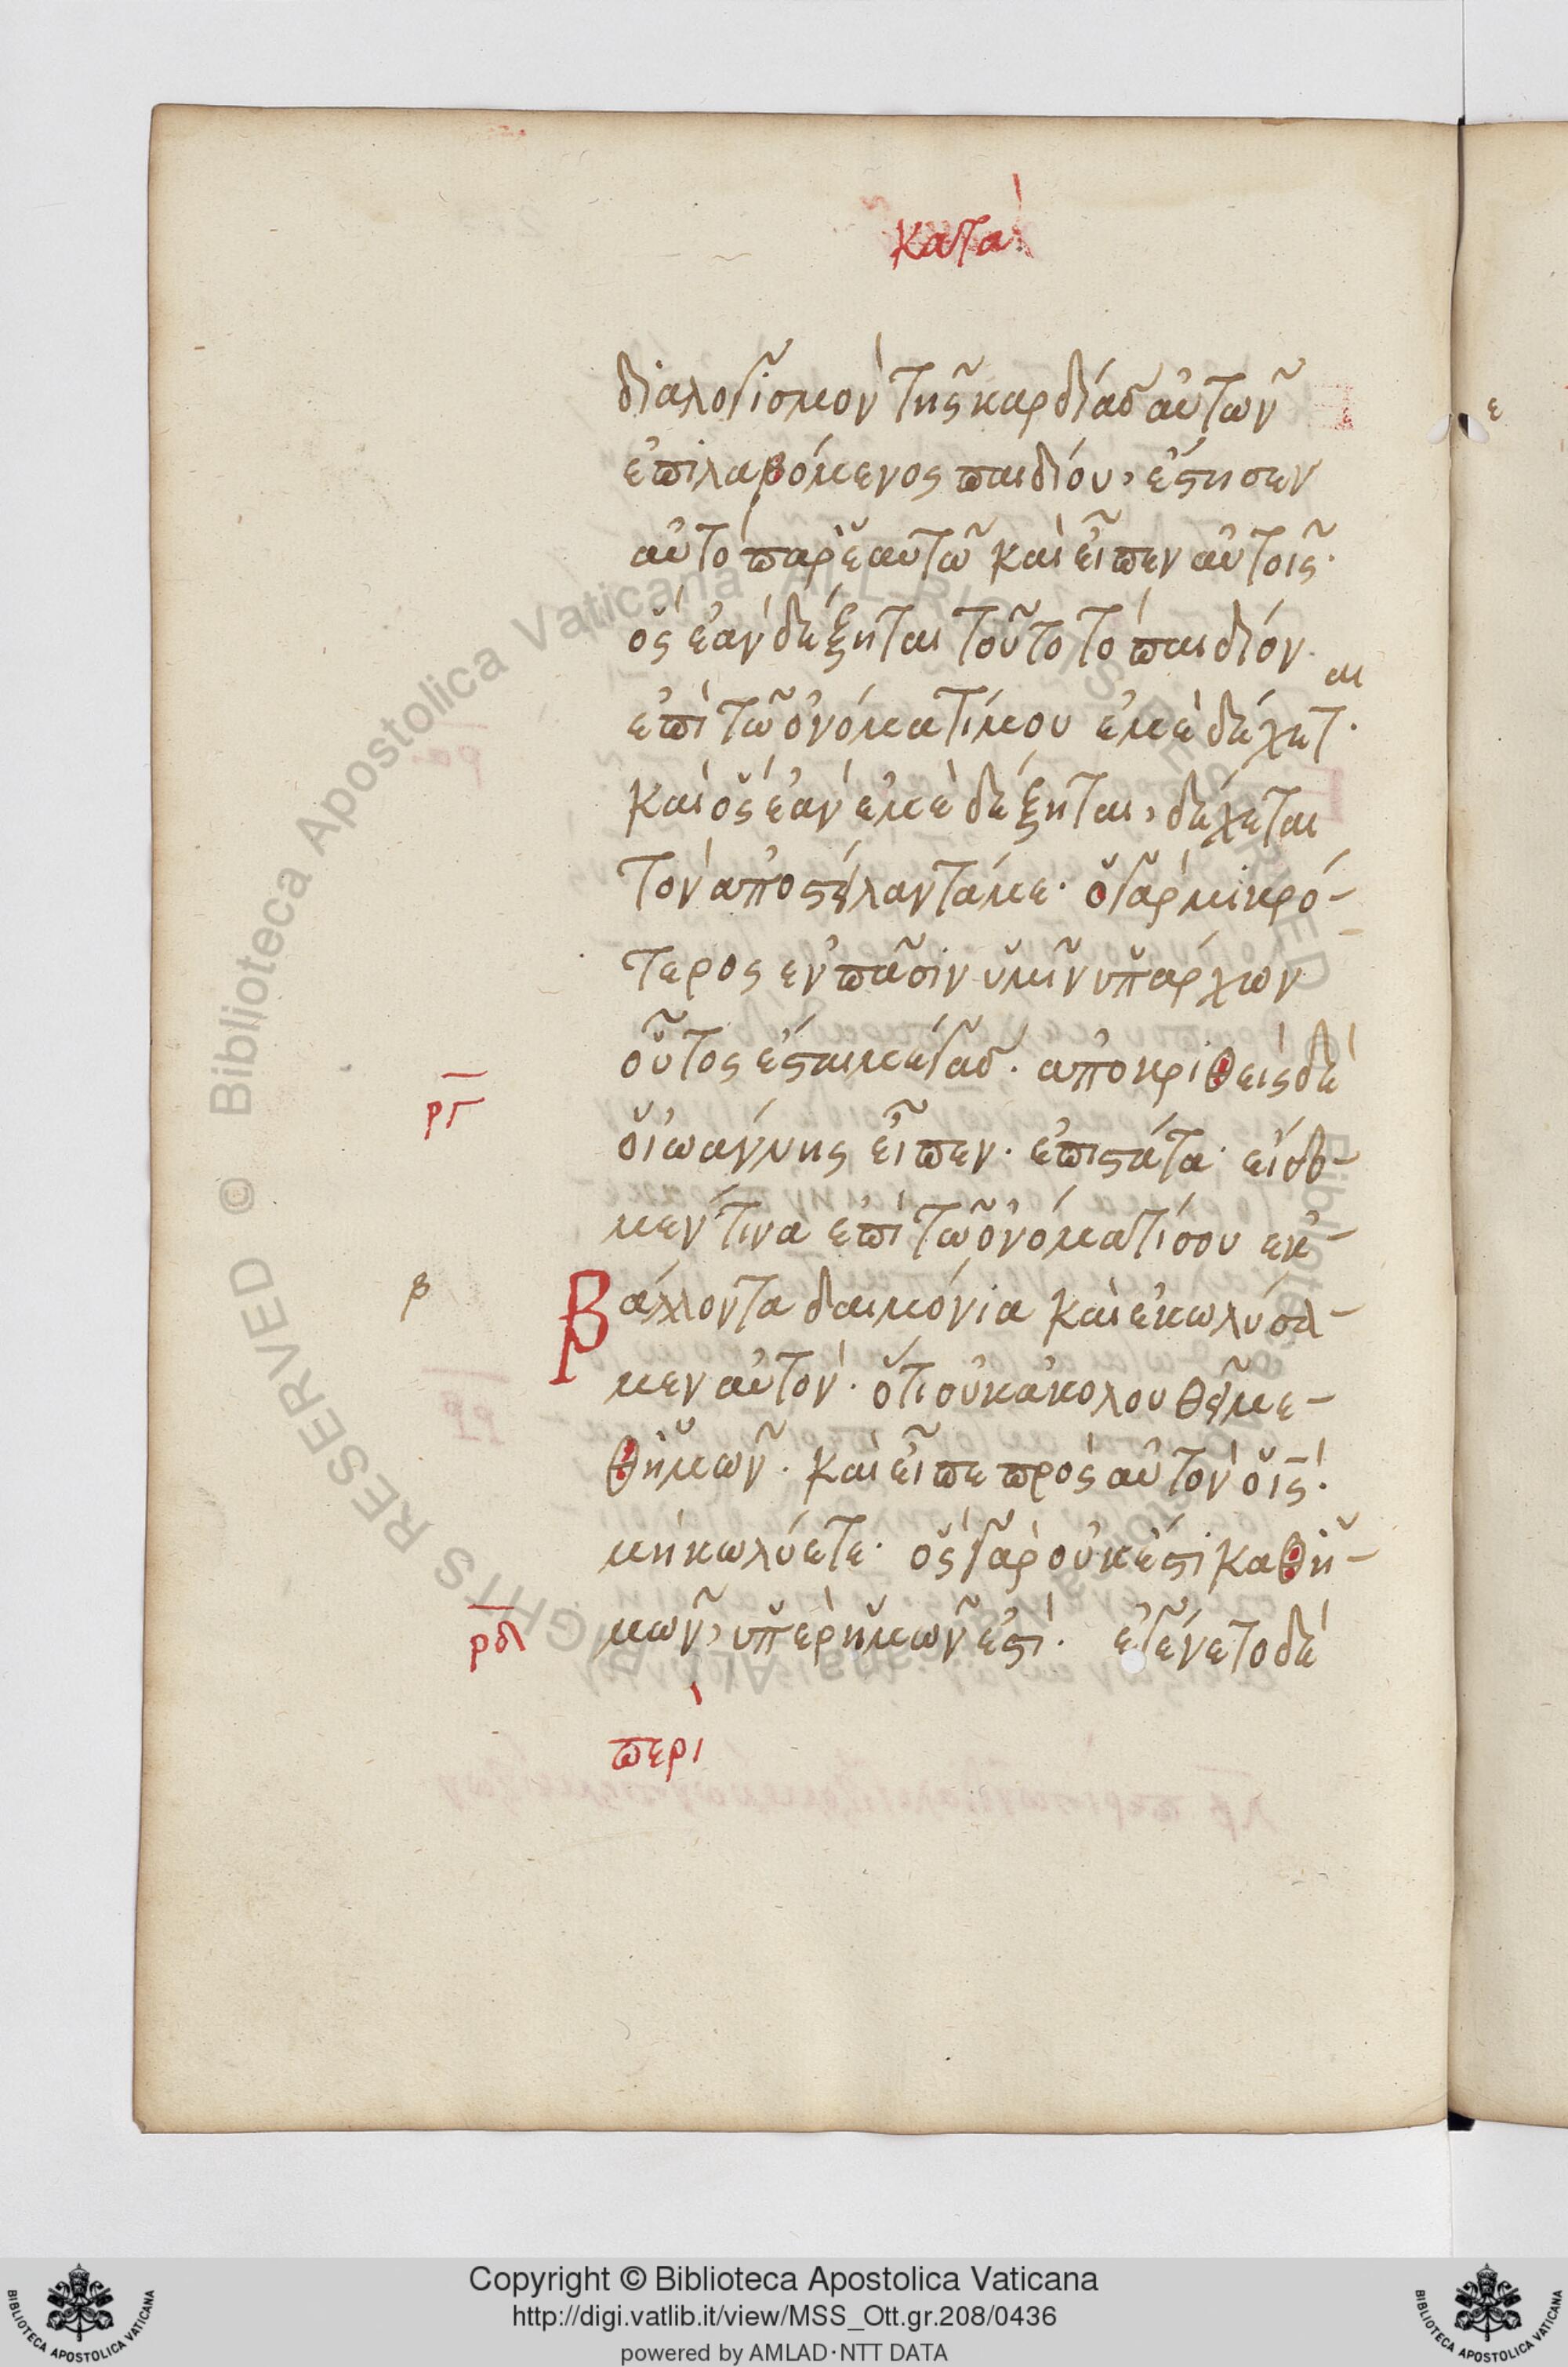 κατὰ
διαλογισμὸν τῆς καρδίας αὐτῶν
ἐπιλαβόμενος παιδίου, ἔστησεν
αὐτὸ παρ' ἑαυτῶ καὶ εἶπεν αὐτοῖς·
ὃς ἐὰν δέξηται τοῦτο τὸ παιδίον
ἐπὶ τῶ ὀνόματί μου ἐμὲ δέχεται·
καὶ ὃς ἐὰν ἐμὲ δέξηται, δέχεται
τὸν ἀποστείλαντά με· ὁ γὰρ μικρό-
τερος ἐν πᾶσιν ὑμῖν ὑπάρχων
οὗτος ἔσται μέγας· ἀποκριθεὶς δὲ
ργ
ὁ ἰωάννης εἶπεν· ἐπιστάτα· εἴδο-
μεν τινὰ ἐπὶ τῶ ὀνόματί σου ἐκ-
β
βάλλοντα δαιμόνια καὶ ἐκωλύσα-
μεν αὐτὸν· ὅτι οὐκ ἀκολουθεῖ με-
θ' ἡμῶν· καὶ εἶπε πρὸς αὐτὸν ὁ ις·
μὴ κωλύετε· ὃς γὰρ οὐκ ἔστι καθ' ἡ-
ρδ
μῶν, ὑπὲρ ἡμῶν ἐστὶ· ἐγένετο δὲ
περὶ
© Biblioteca Apostolica Vaticana ALL RIGHTS RESERVED
Copyright © Biblioteca Apostolica Vaticana
http://digi.vatlib.it/view/MSS_Ott.gr.208/0436
powered by AMLAD·NTT DATA
BIBLIOTECA APOSTOLICA VATICANA
BIBLIOTECA APOSTOLICA VATICANA